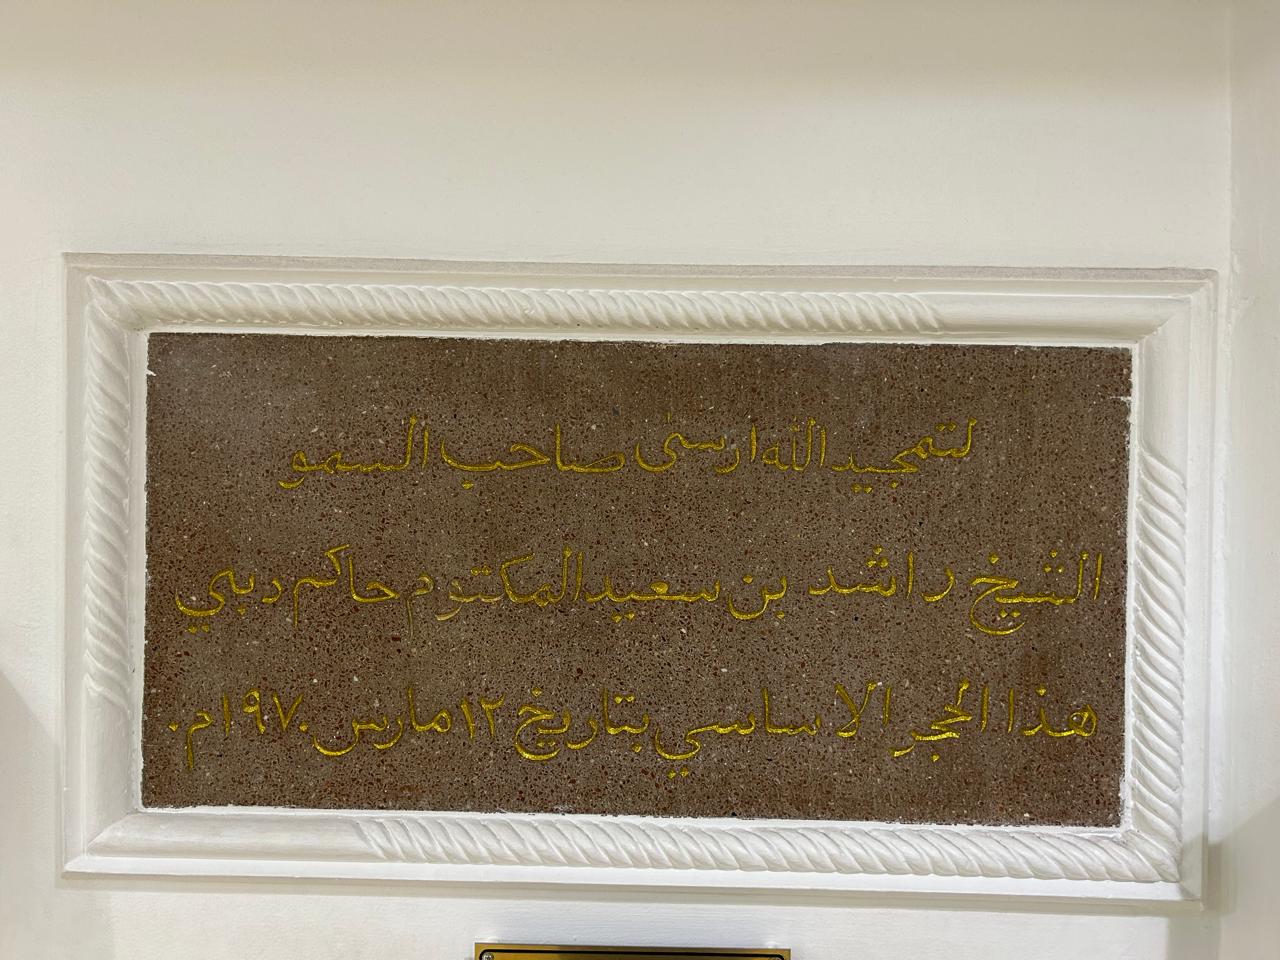 لتمجيد الله ارسى صاحب السمو
الشيخ راشد بن سعيد المكتوم حاكم دبي
هذا الحجر الاساسي بتاريخ ١٢ مارس ١٩٧٠م.